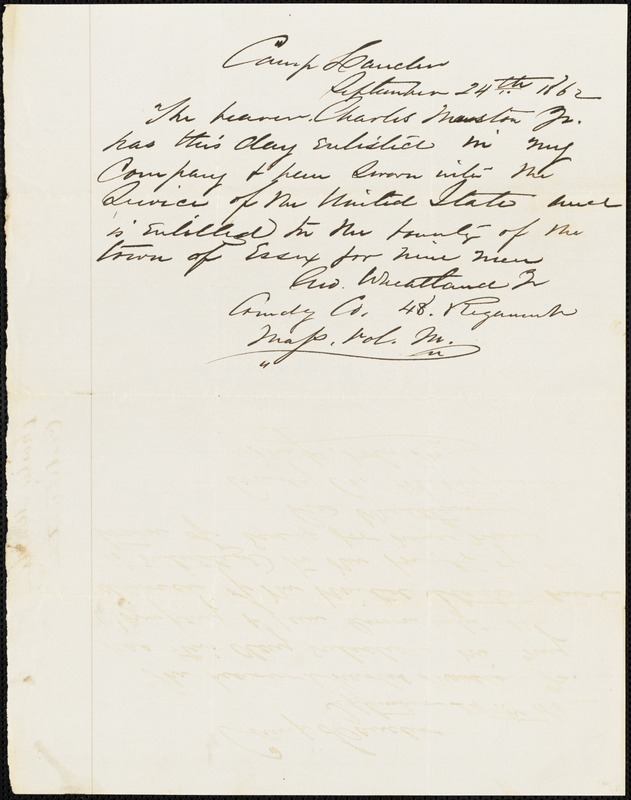 Camp Lander
September 24th 1862
The bearer Charles Marston Jr.
has this day enlisted in my
Company & been sworn into the
Service of the United State and
is entitled to the bounty of the
town of Essex for nine men
Geo. Wheatland Jr
Comdg Co. 48. Regiment
Mass. Vol. M.